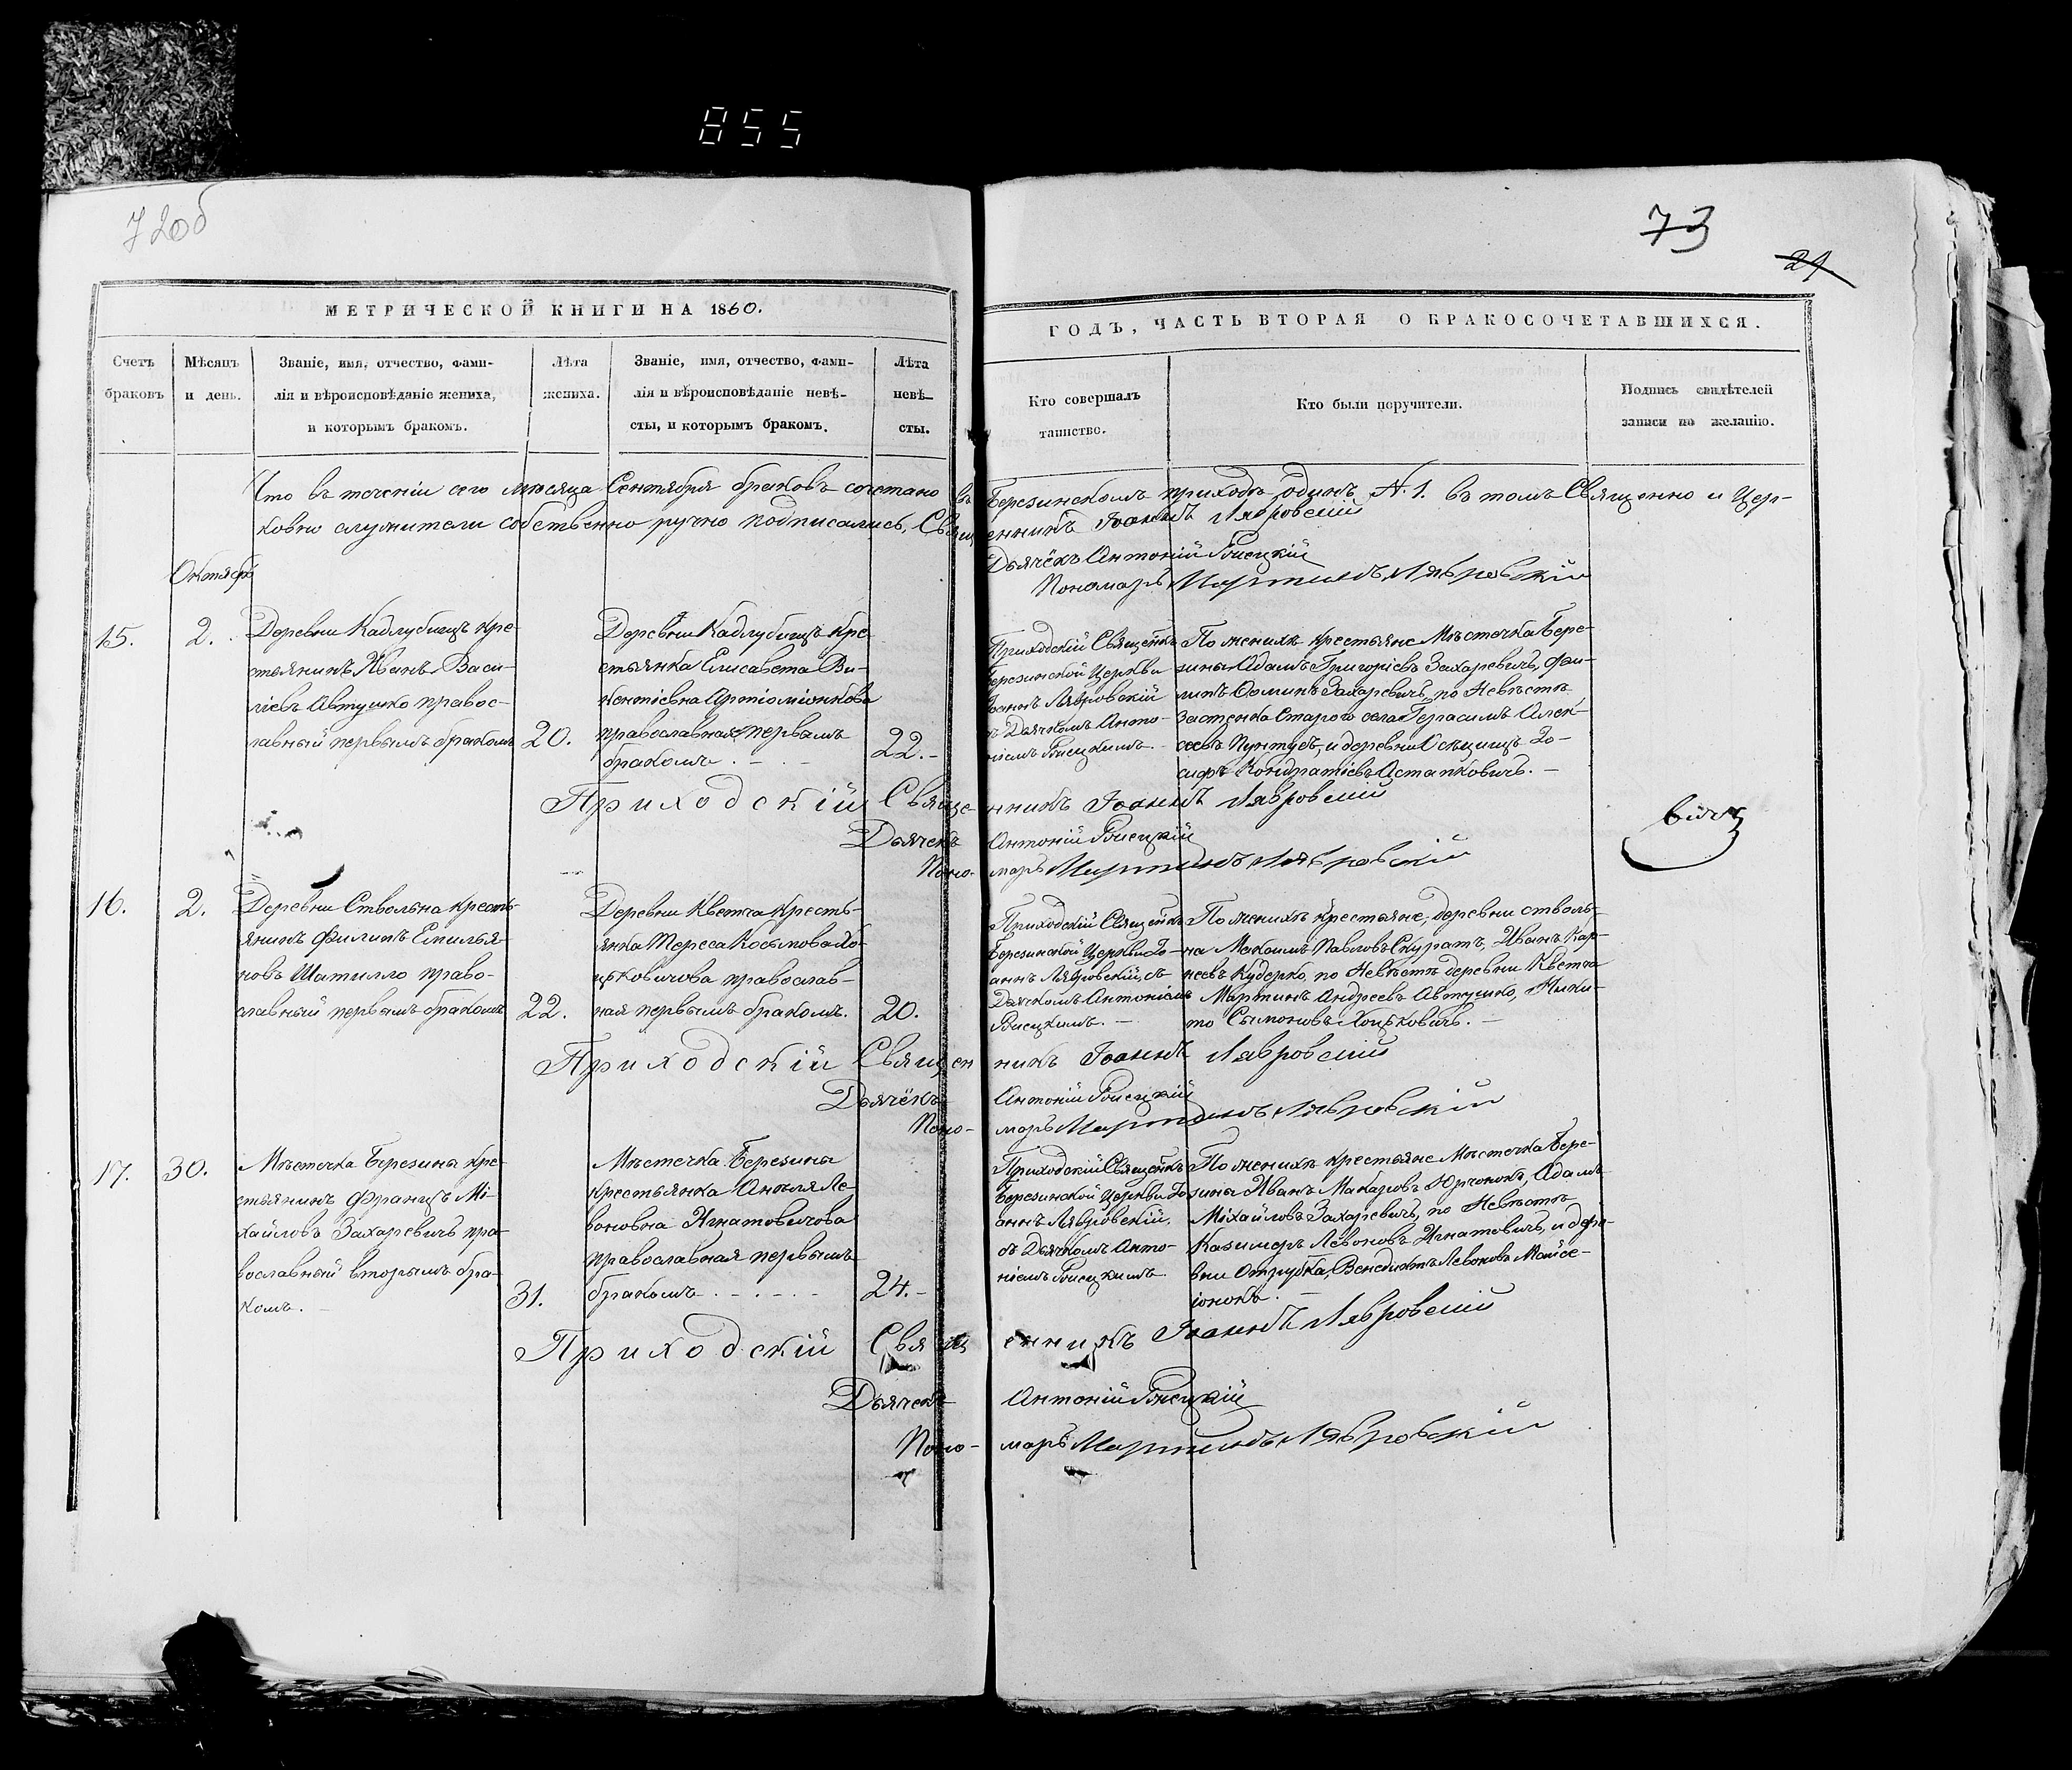 855
72об
73
29
МЕТРИЧЕСКОЙ КНИГИ НА 1860.
Счетъ браковъ
Мѣсяцъ и день.
Званіе, имя, отчество, фами-
лія и вѣроисповѣданіе жениха,
и которымъ бракомъ.
Лѣта
жениха.
Званіе, имя, отчество, фами-
лія и вѣроисповѣданіе невѣ-
сты, и которымъ бракомъ.
Лѣта
невѣ-
сты.
ГОДЪ, ЧАСТЬ ВТОРАЯ О БРАКОСОЧЕТАВШИХСЯ.
Кто совершалъ
таинство.
Кто были поручители.
Подпись свидѣтелей
записи по желанію.
Что въ теченіи сего мѣсяца Сентября браковъ сочетано въ Березинскомъ приходѣ одинъ №. 1. въ томъ Священно и Цер-
ковно служители собственно ручно подписались, Священникъ Іоаннъ Лявровскій
Дьячёкъ Антоній
Пономарь Мартинъ Лявровскій
Октябрь
15.
2.
Деревни Кадлубищъ кре-
стьянинъ Иванъ Васи-
ліевъ Автушко правос-
лавный первымъ бракомъ
20.
Деревни Кадлубищъ кре-
стьянка Елисавета Ви-
кентіевна
православная первымъ
бракомъ.
22.
Приходскій Священикъ
Березинской Церкви
Іоаннъ Лявровскій
съ Дьячкомъ Анто-
ніемъ
По женихѣ крестьяне Мѣстечка Бере-
зины Адамъ Григоріевъ Захаревичъ, Фи-
липъ Фоминъ Захаревичъ, по Невѣстѣ
застенка Старого села Герасимъ Алек-
сеевъ Пунтусъ, и деревни Осѣщищъ Іо-
сифъ Кондратіевъ Астапковичъ.
Приходскій Священникъ Іоаннъ Лявровскій
Дьячекъ Антоній
Пономарь Мартинъ Лявровскій
16.
2.
Деревни Стволына кресть-
янинъ Филипъ Емилья-
новъ Шатилло право-
славный первымъ бракомъ
22.
Деревни Кветча кресть-
янка Тереса
православ-
ная первымъ бракомъ.
20.
Приходскій Священикъ
Березинской Церкви Іо-
аннъ Лявровскій, съ
Дьячкомъ Антоніемъ
По женихѣ крестьяне, деревни стволы-
на Максимъ Павловъ Скуратъ, Иванъ Кар-
неевъ Кудерко, по Невѣстѣ деревни Кветча
Мартинъ Андреевъ Автушко, Ники-
та Сымоновъ Хоцѣковичъ.
Приходскій Священникъ Іоаннъ Лявровскій
Дьячёкъ Антоній
Пономарь Мартинъ Лявровскій
17.
30.
Мѣстечка Березина кре-
стьянинъ Францъ Мі-
хайловъ Захаревичъ пра-
вославный вторымъ бра-
комъ.
31.
Мѣстечка Березины
крестьянка Анеля Ле-
воновна Игнатовичова
православная первымъ
бракомъ.
24.
Приходскій Священикъ
Березинской Церкви Іо-
аннъ Лявровскій,
съ Дьячкомъ Анто-
ніемъ
По женихѣ крестьяне Мѣстечка Бере-
зины Иванъ Макаровъ Юрчонокъ, Адамъ
Міхайловъ Захаревичъ, по Невѣстѣ
Казимеръ Левоновъ Игнатовичъ, и дере-
вни Отрубка, Венедиктъ Левоновъ Майсе-
іонокъ.
Приходскій Священникъ Іоаннъ Лявровскій
Дьячекъ Антоній
Пономарь Мартинъ Лявровскій